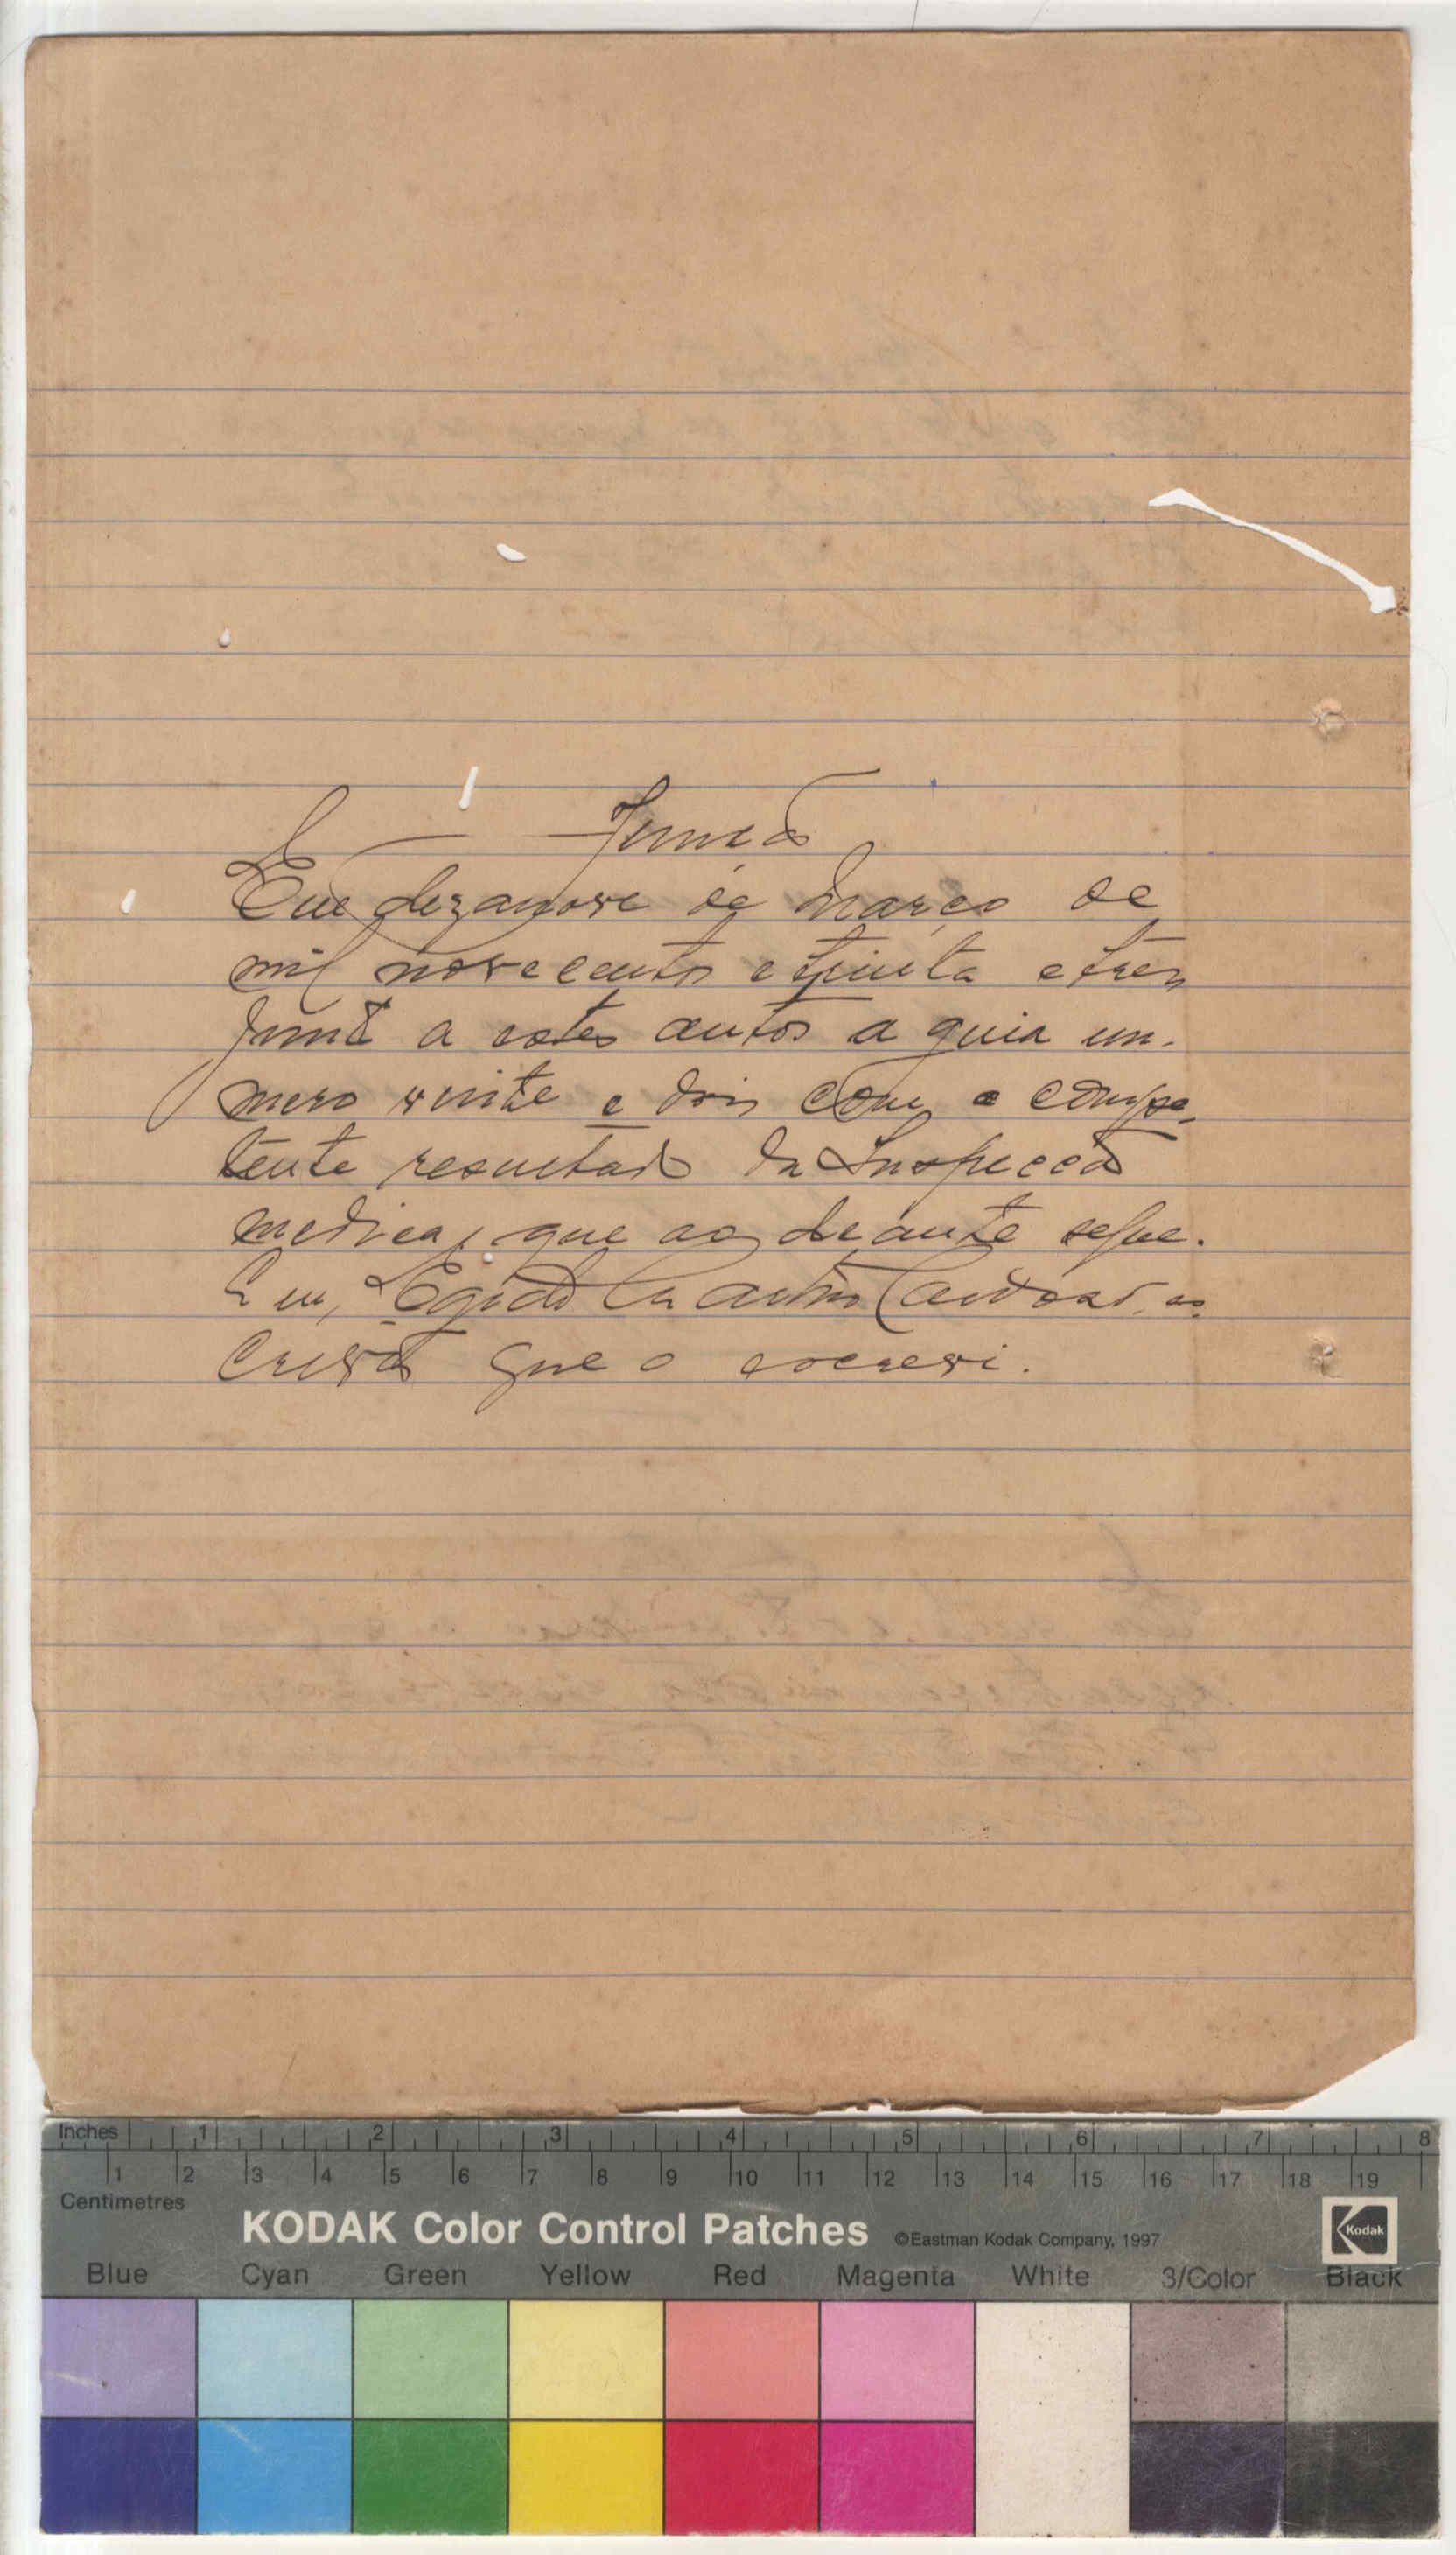 Junção
Em dezanove de Março de
mil novecentos e trinta e tres
junto a estes autos a guia nu-
mero vinte e dois com o compe-
tente resultado da Inspecção
medica, que ao deante segue.
Eu, Egidio Cardoso, es-
crivão que o escrevi.
Inches 1 2 3 4 5 6 7 8
1 2 3 4 5 6 7 8 9 10 11 12 13 14 15 16 17 18 19
Centimetres
KODAK Color Control Patches ©Eastman Kodak Company, 1997 Kodak
Blue Cyan Green Yellow Red Magenta White 3/Color Black